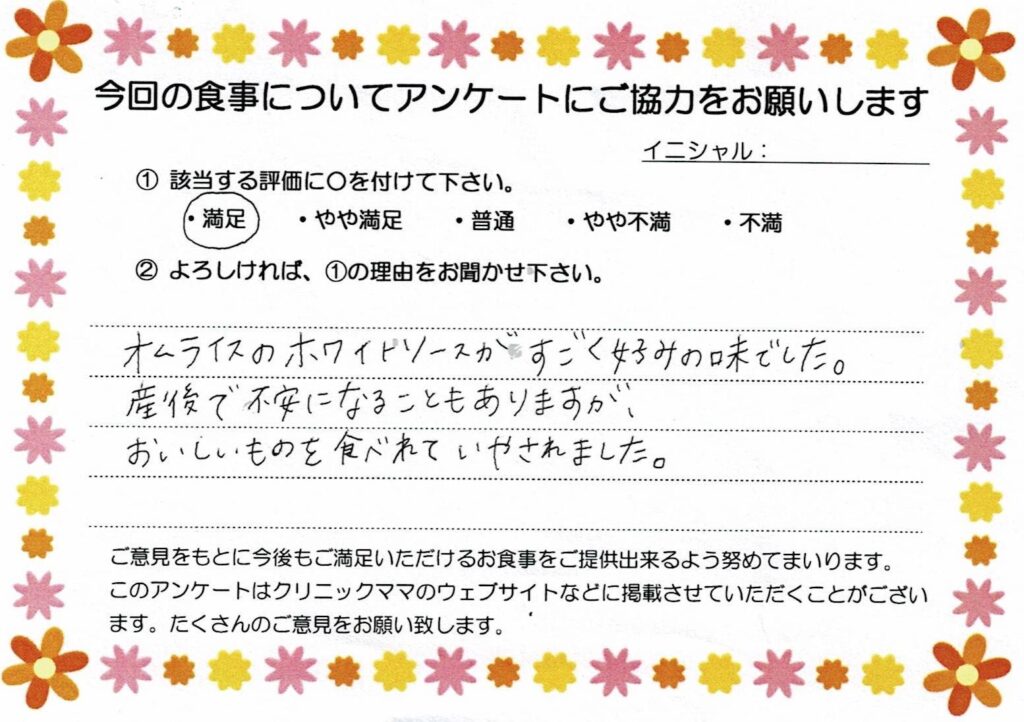 今回の食事についてアンケートにご協力をお願いします
イニシャル：
① 該当する評価に〇を付けて下さい。
・満足 ・やや満足 ・普通 ・やや不満 ・不満
② よろしければ、①の理由をお聞かせ下さい。
オムライスのホワイトソースがすごく好みの味でした。
産後で不安になることもありますが、
おいしいものを食べれていやされました。
ご意見をもとに今後もご満足いただけるお食事をご提供出来るよう努めてまいります。
このアンケートはクリニックママのウェブサイトなどに掲載させていただくことがござい
ます。たくさんのご意見をお願い致します。